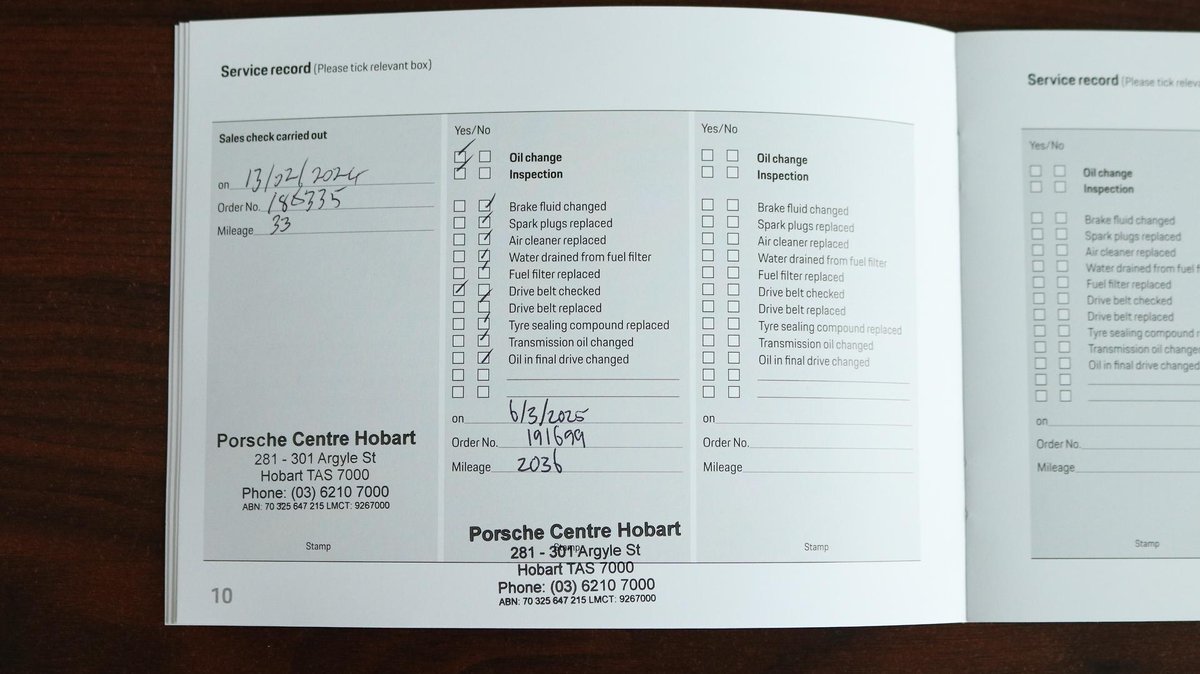 Service record (Please tick relevant box)
Sales check carried out
on 13/02/2024
Order No. 186335
Mileage 33
Porsche Centre Hobart
281 - 301 Argyle St
Hobart TAS 7000
Phone: (03) 6210 7000
ABN: 70 325 647 215 LMCT: 9267000
Stamp
Yes/No
Oil change
Inspection
Brake fluid changed
Spark plugs replaced
Air cleaner replaced
Water drained from fuel filter
Fuel filter replaced
Drive belt checked
Drive belt replaced
Tyre sealing compound replaced
Transmission oil changed
Oil in final drive changed
on 6/3/2025
Order No. 191699
Mileage 2036
Porsche Centre Hobart
281 - 301 Argyle St
Stamp
Hobart TAS 7000
Phone: (03) 6210 7000
ABN: 70 325 647 215 LMCT: 9267000
Yes/No
Oil change
Inspection
Brake fluid changed
Spark plugs replaced
Air cleaner replaced
Water drained from fuel filter
Fuel filter replaced
Drive belt checked
Drive belt replaced
Tyre sealing compound replaced
Transmission oil changed
Oil in final drive changed
on
Order No.
Mileage
Stamp
10
Service record (Please tick releva
Yes/No
Oil change
Inspection
Brake fluid changed
Spark plugs replaced
Air cleaner replaced
Water drained from fuel f
Fuel filter replaced
Drive belt checked
Drive belt replaced
Tyre sealing compound r
Transmission oil changed
Oil in final drive changed
on
Order No.
Mileage
Stamp